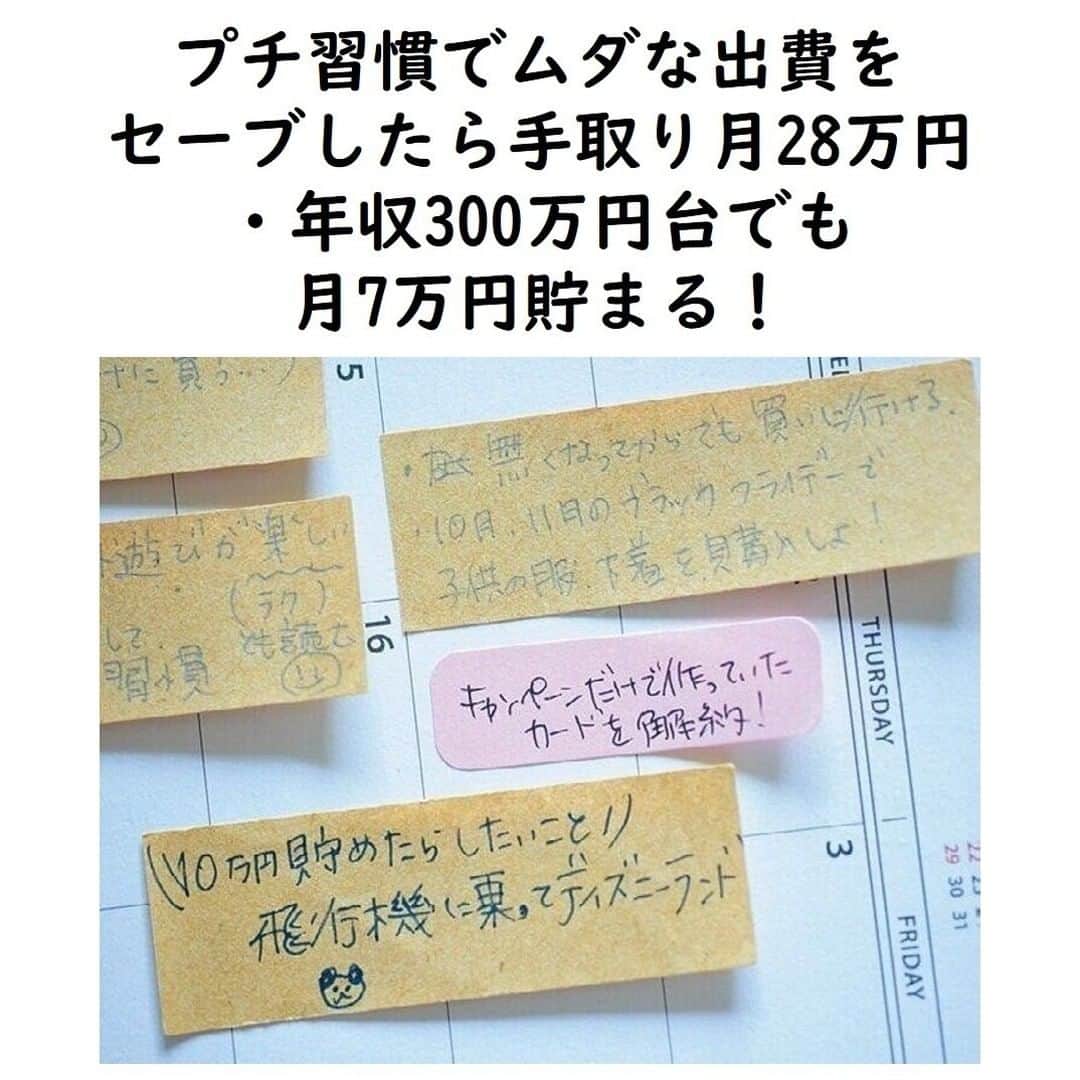 プチ習慣でムダな出費を
セーブしたら手取り月28万円
・年収300万円台でも
月7万円貯まる！
けに買う…)
5
・無くなってからでも買いに行ける.
・10月、11月のブラックフライデーで
子供の服、下着を買溜めしよ！
遊びが楽しい
(ラク)
して. とも読む
習慣
16
THURSDAY
キャンペーンだけで作っていた
カードを解約！
\\10万円貯めたらしたいこと//
飛行機に乗ってディズニーランド
3
FRIDAY
22 23
29 30 31